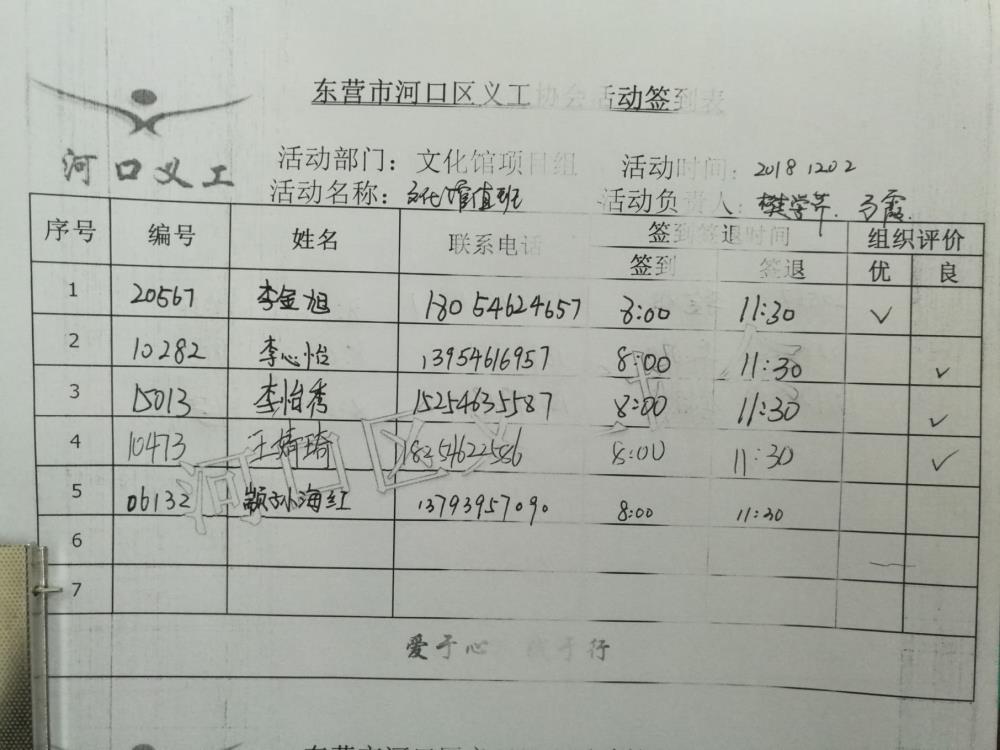 东营市河口区义工协会活动签到表
河口义工
活动部门：文化馆项目组 活动时间：20181202
活动名称：文化馆值班 活动负责人：樊学芹. 马霞.
序号 编号 姓名 联系电话 签到签退时间 组织评价
签到 签退 优 良
1 20567 李金旭 18054624657 8:00 11:30 ✓
2 10282 李心怡 13954616957 8:00 11:30 ✓
3 15013 李怡秀 15254635587 8:00 11:30 ✓
4 10473 王婧琦 18254622586 8:00 11:30 ✓
5 06132 颛孙海红 13793957090 8:00 11:30
6
7
河口区义工
爱于心 践于行
东营市河口区义工